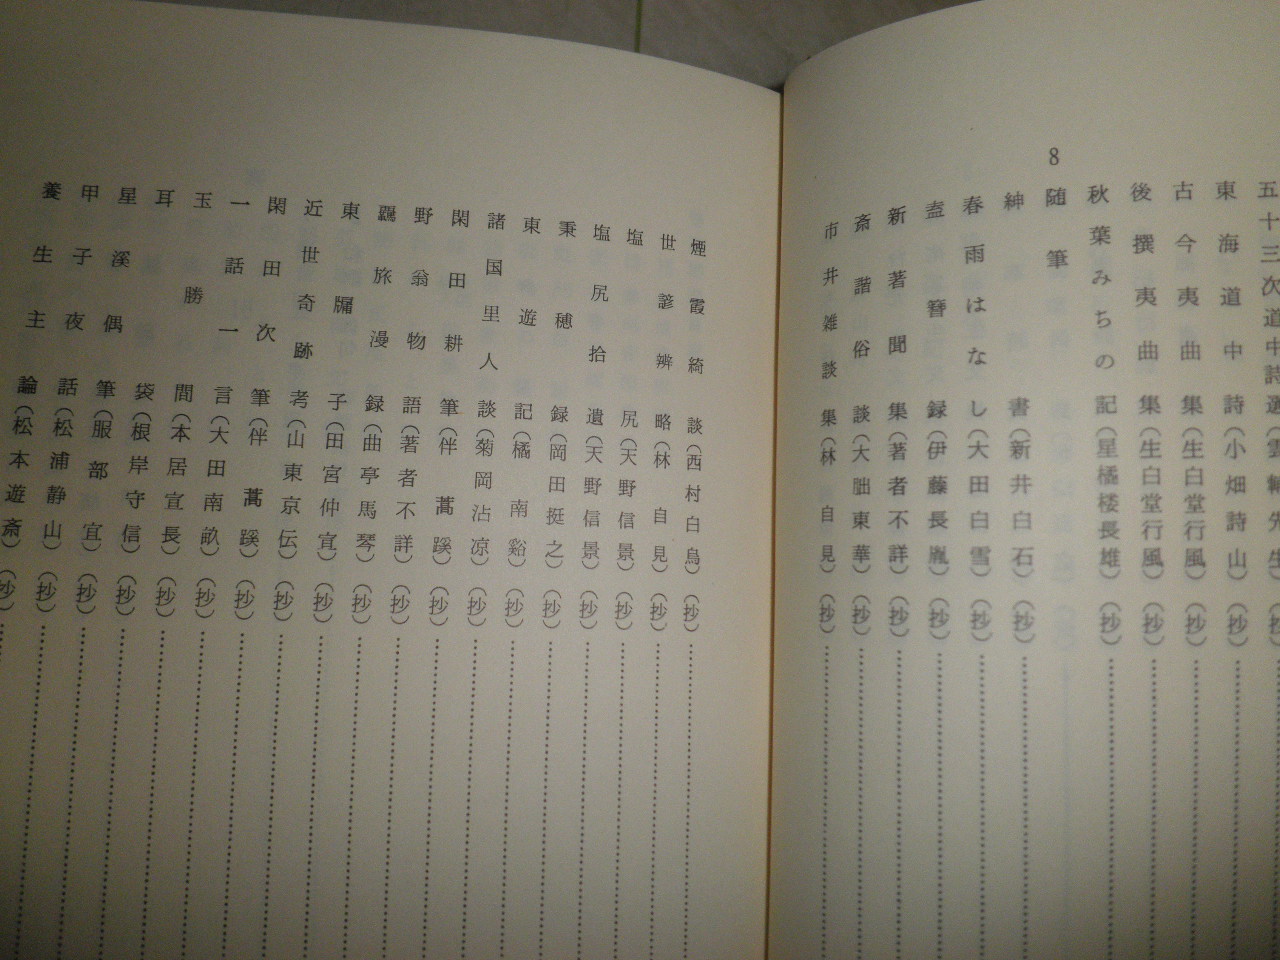 五十三次道中詩
東海道中詩（小畑詩山）（抄）
古今夷曲集（生白堂行風）（抄）
後撰夷曲集（生白堂行風）（抄）
秋葉みちの記（星橘楼長雄）（抄）
8
随筆
紳書（新井白石）（抄）
春雨はなし（大田白雪）（抄）
盍簪録（伊藤長胤）（抄）
新著聞集（著者不詳）（抄）
斎諧俗談（大朏東華）（抄）
市井雑談集（林自見）（抄）
煙霞綺談（西村白鳥）（抄）
世諺辨略（林自見）（抄）
塩尻（天野信景）（抄）
塩尻拾遺（天野信景）（抄）
秉穂録（岡田挺之）（抄）
東遊記（橘南谿）（抄）
諸国里人談（菊岡沾凉）（抄）
閑田耕筆（伴蒿蹊）（抄）
野翁物語（著者不詳）（抄）
羇旅漫録（曲亭馬琴）（抄）
東牖子（田宮仲宣）（抄）
近世奇跡考（山東京伝）（抄）
閑田次筆（伴蒿蹊）（抄）
一話一言（大田南畝）（抄）
玉勝間（本居宣長）（抄）
耳袋（根岸守信）（抄）
星溪偶筆（服部宜）（抄）
甲子夜話（松浦静山）（抄）
養生主論（松本遊斎）（抄）